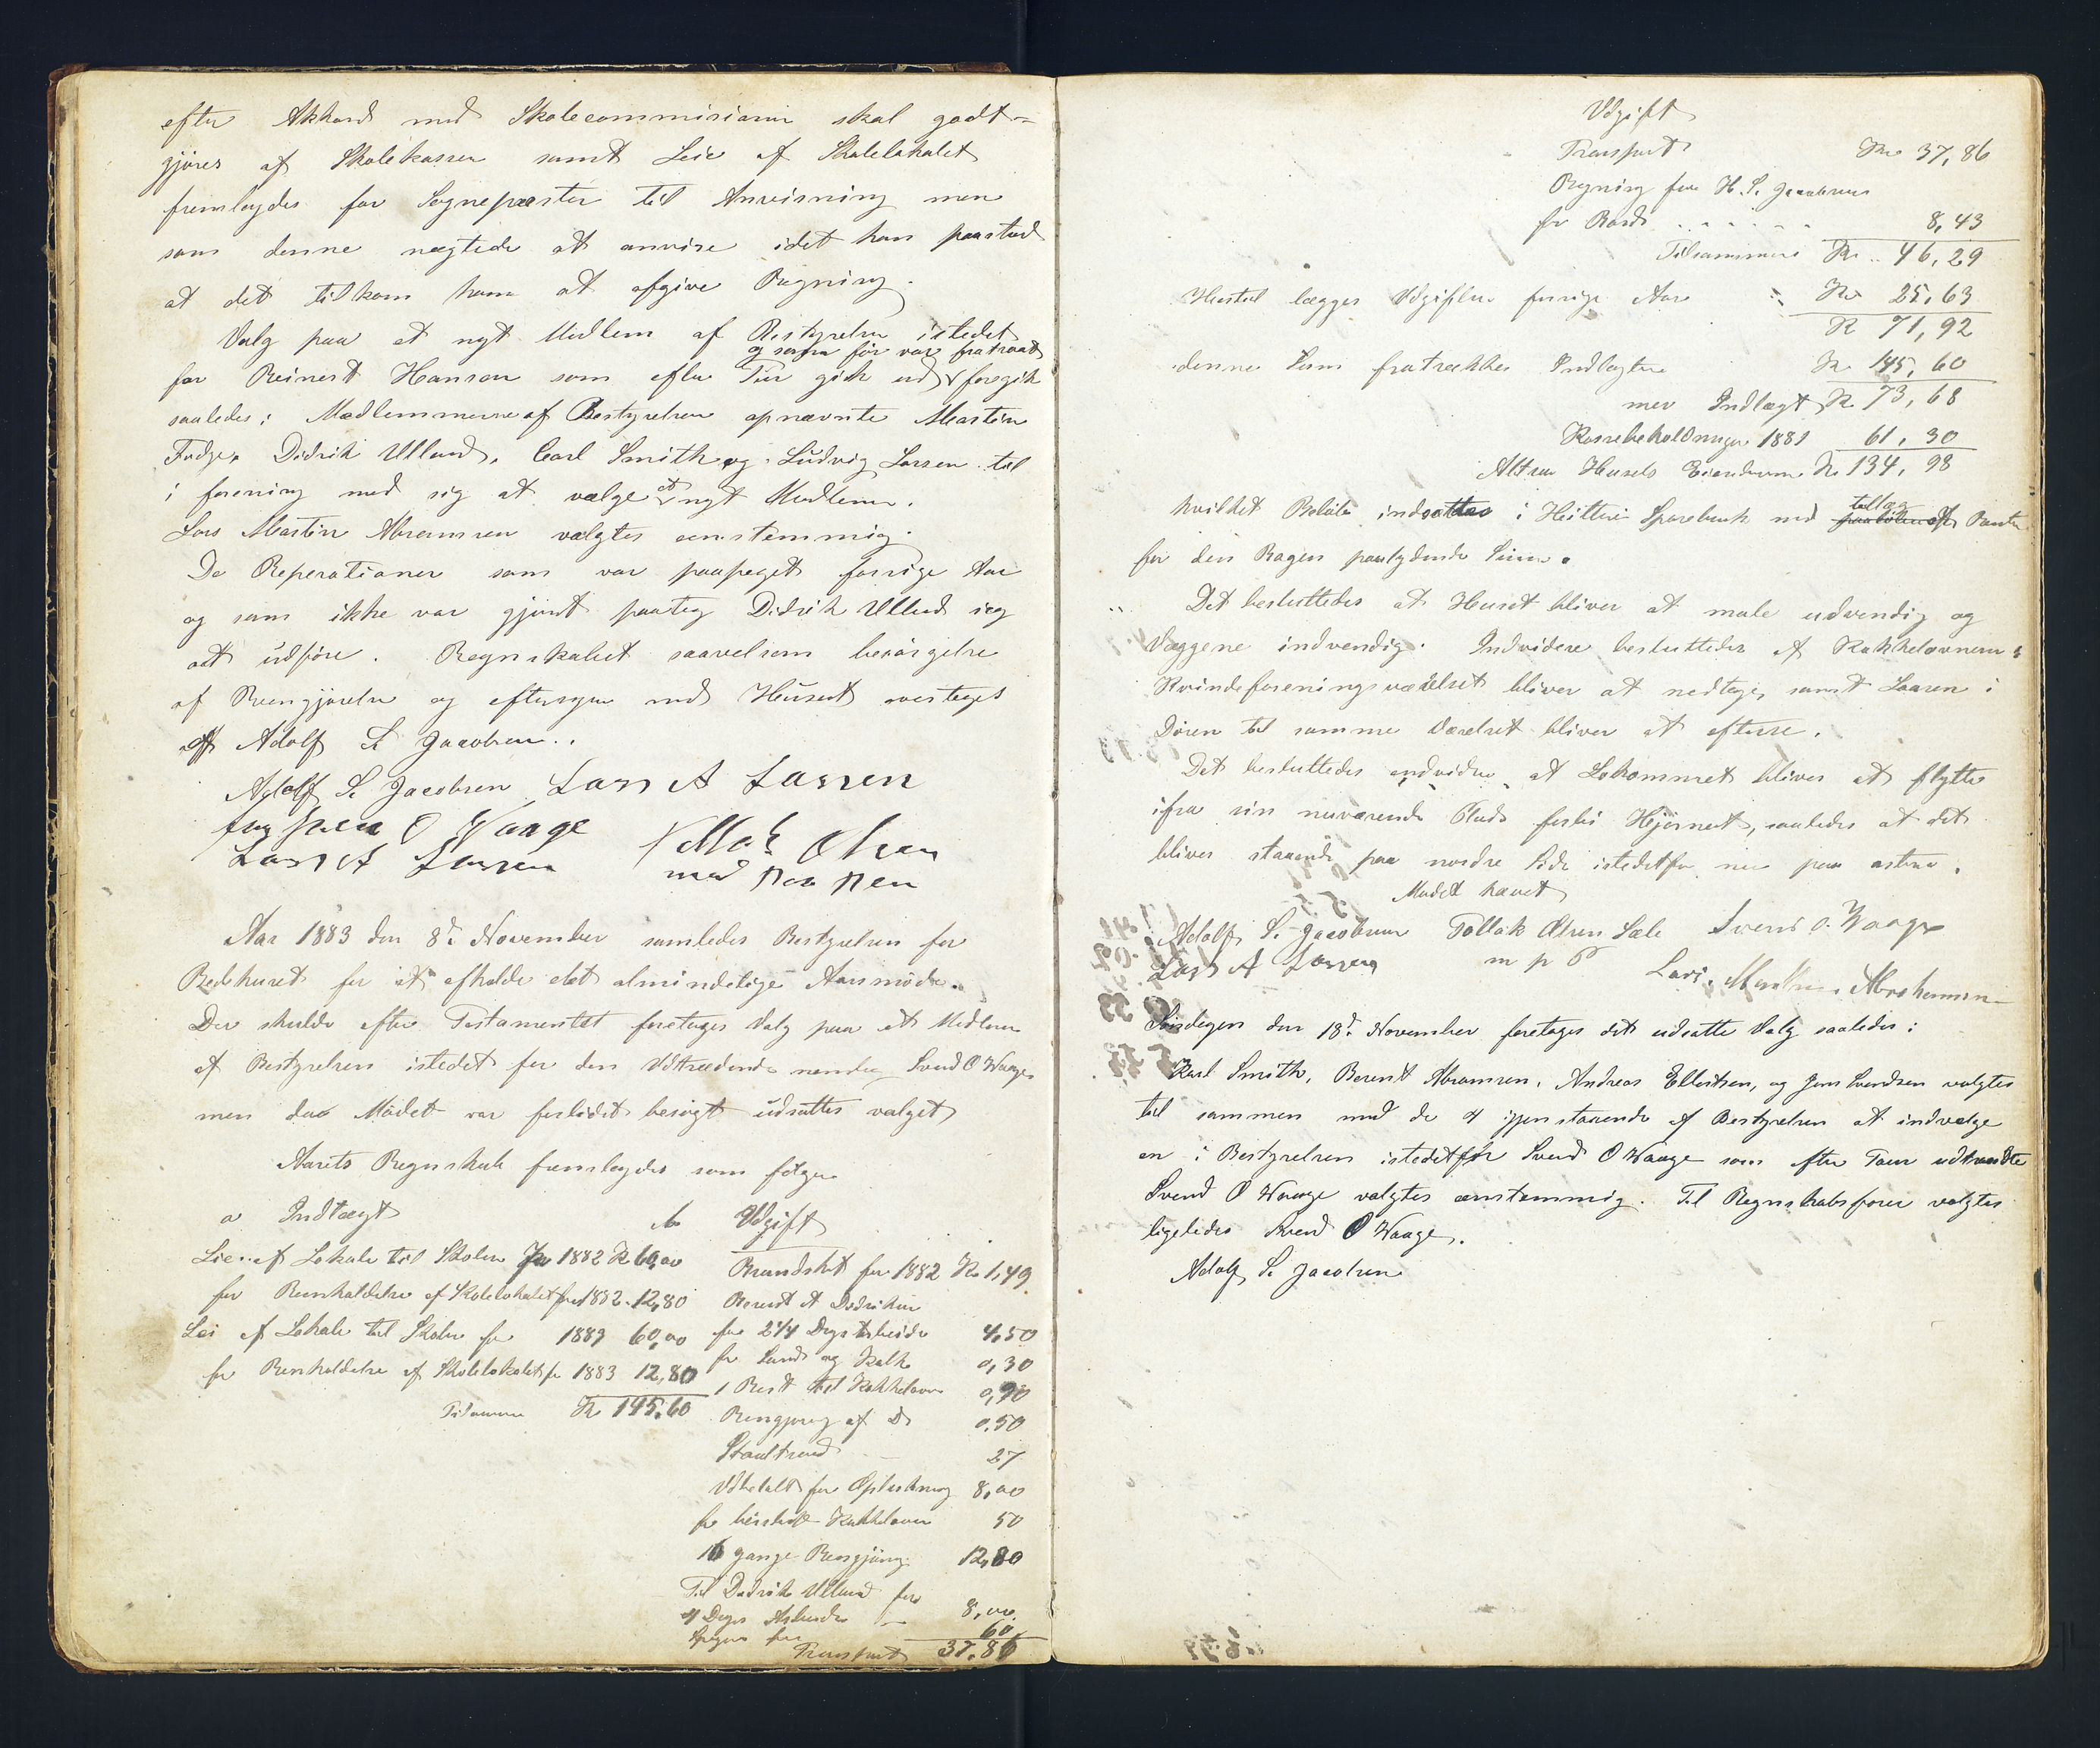 efter Akkord med Skolecommisionen skal godt-
gjöres af Skolekassen samt Leie af Skolelokalet
fremlagdes for Sognepræsten til Anvisning men
som denne nægtede at anvise idet han paastod
at det tilkom ham at afgive Regning.
Valg paa et nyt Medlem af Bestyrelsen istedet
og som før var fratraat
for Reinert Hansen som efter Tur gik ud foregik
saaledes: Medlemmerne af Bestyrelsen opnævnte Martin
Didrik Ulland, Carl Smith og Ludvig Larsen til
i forening med sig at vælge et nyt Medlem.
Lars Martin Abramsen valgtes eenstemmig.
De Reperationer som var paapeget forrige Aar
og som ikke var gjort paatog Didrik Ulland sig
at udföre. Regnskabet saavelsom besörgelse
af Reengjörelse og eftersyn med Huset overtages
af Adolf S. Jacobsen.
Adolf S. Jacobsen Lars A Larsen
Svend O Waage Tollak Olsen
Lars A Larsen med Paa Pen
Aar 1883 den 8de November samledes Bestyrelsen for
Bedehuset for at afholde det almindelige Aarsmöde.
Der skulde efter Testamentet foretages Valg paa et Medlem
af Bestyrelsen istedet for den Udtrædende nemlig Svend O Waage
men da Mödet var forlidet besögt udsattes valget
Aarets Regnskab fremlagdes som følger
a Indtægt b Udgift
Leie af Lokale til Skolen for 1882 K 60,00 Brandskat for 1882 Kr 1,49
for Renholdelse af Skolelokalet for 1882 12,80 Berent A Didriksen
Lei af Lokale til Skolen for 1883 60,00 for 2 1/4 Dags Arbeide 4,50
for Renholdelse af Skolelokalet for 1883 12,80 for Sand og Kalk 0,30
1 Rist til Kakkelovn 0,90
Tilsammen Kr 145,60 Rengjöring af Do 0,50
Staaltraad 27
Udbetalt for Opluskning 8,00
for Kakkelovn 50
16 gange Rengjöring 12,80
Til Didrik Ulland for
4 Dages Arbeide 8,00
Spiger for 60
Transport 37,86
Udgift
Transport Kr 37,86
Regning fra H. S. Jacobsen
for Bord 8,43
Tilsammen Kr 46,29
Hvortil lægges Udgifter forrige Aar Kr 25,63
K 71,92
denne Sum fratrækkes Indtægten Kr 145,60
mer Indtægt K 73,68
Kassebeholdningen 1881 61,30
Altsaa Husets Eiendom Kr 134,98
hvilket Belöb indsættes i Hitterö Sparebank med tillæg af Renter
for den Bogen paalydende Sum.
Det besluttedes at Huset bliver at male udvendig og
Væggene indvendig. Endvidere besluttedes at Kakkelovnen i
Kvindeforeningsværelset bliver at nedtage, samt Laasen i
Dören til samme Værelset bliver at efterse.
Det besluttedes endvidere at Lokommet bliver at flytte
ifra sin nuværende Plads forbi Hjörnet, saaledes at det
bliver staaende paa nordre Side istedetfor nu paa östre.
Mödet hævet
Adolf S. Jacobsen Tollak Olsen Sæle Svend O. Waage
Lars A Larsen m p P Lars Martin Abrahamsen
Söndagen den 18de November foretages det udsatte Valg saaledes:
Karl Smith, Berent Abramsen, Andreas Ellertsen, og Jens Svendsen valgtes
til sammen med de 4 igjenstaaende af Bestyrelsen at indvælge
en i Bestyrelsen istedetfor Svend O Waage som efter Tour udtraadte
Svend O Waage valgtes eenstemmig. Til Regnskabsförer valgtes
ligeledes Svend O Waage.
Adolf S. Jacobsen